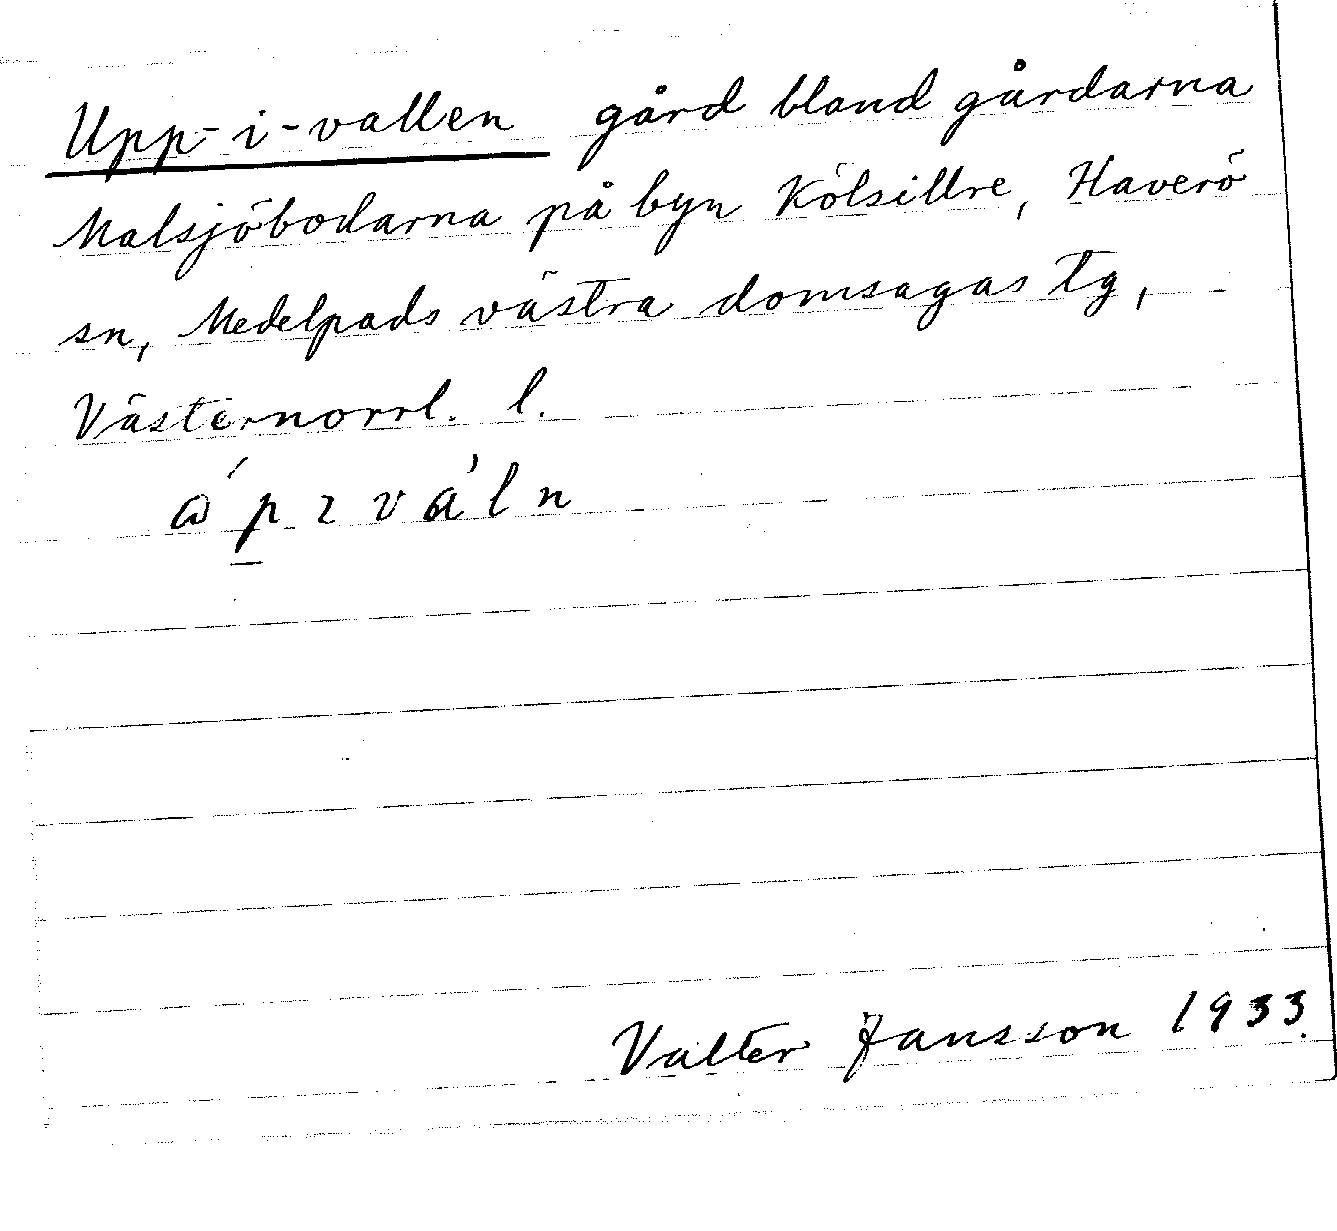 Upp-i-vallen gård bland gårdarna
Malsjöbodarna på byn Kölsillre, Haverö
sn, Medelpads västra domsagas tg,
Västernorrl. l.
Valter Jansson 1933.